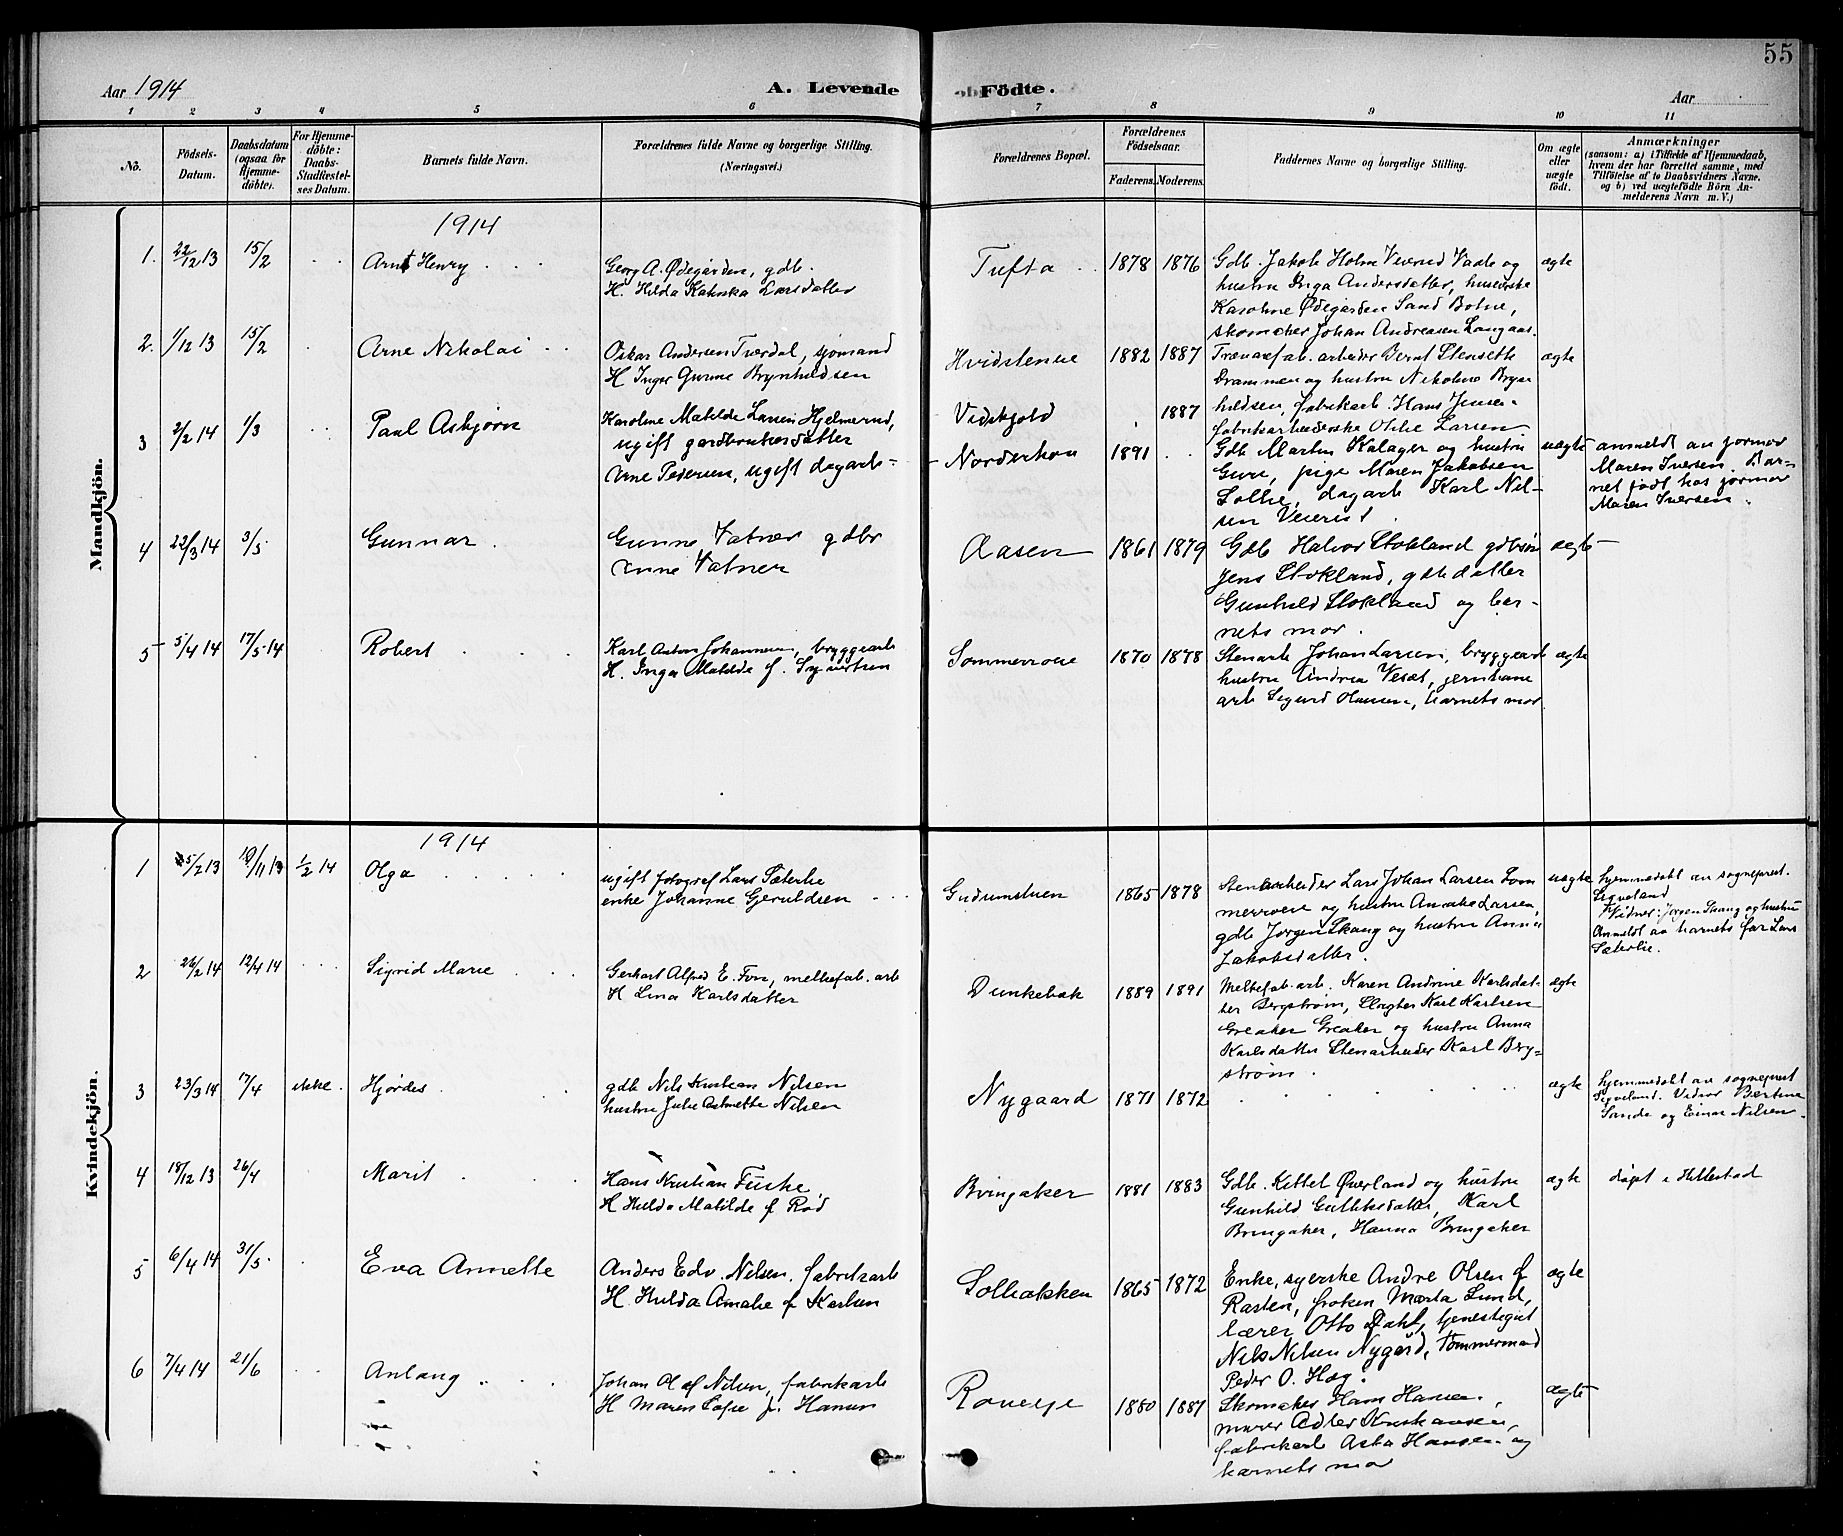 55
Aar 1914 A. Levende Födte. Aar
1 2 3 4 5 6 7 8 9 10 11
No.
Födsels-Datum.
Daabsdatum (ogsaa för Hjemmedöbte).
For Hjemmedöbte: Daabs-Stadfæstelses Datum.
Barnets fulde Navn.
Forældrenes fulde Navne og borgerlige Stilling.
(Næringsvei.)
Forældrenes Bopæl.
Forældrenes Födselsaar.
Faderens. Moderens.
Faddernes Navne og borgerlige Stilling.
Om ægte eller uægte födt.
Anmærkninger
(saasom: a) i Tilfælde af Hjemmedaab, hvem der har forrettet samme, med Tilföielse af to Daabsvidners Navne, og b) ved uægtefödte Börn Anmelderens Navn m. V.)
Mandkjön.
1914
1. 22/12 13 15/2 Arnt Henry
Georg A. Ødegården, gdb.
H. Hilda Larsdatter
Tufta 1878 1876
Gdb. Jakob Holm Veierud Vaale og
hustru Inga Andersdatter,
Karoline Ødegården Sand Botne,
skomaker Johan Andreasen Langaas.
ægte
2. 1/12 13 15/2 Arne Nikolai
Oskar Andersen Tverdal, sjømand
H Inger Gurine Brynhildsen
Hvidstenene 1882 1887
arbeider Bernt Stensette
Drammen og hustru Nikoline Bryn-
hildsen, fabrikarb. Hans Jensen
fabrikarbeiderske Otilie Larsen
ægte
3 2/2 14 1/3 Paul Asbjørn
Karoline Matilde Larsen Hjelmerud,
ugift gardbrukersdatter
Arne Pedersen, ugift dagarb-
Vidskjold 1887
Norderhou 1891
Gdb Martin Kalager og hustru
Gure, pige Maren Jakobsen
Sollie, dagarb Karl Nil-
sen Veierud.
uægte
anmeldt av jormor
Maren Iversen. Bar-
net født hos jormor
Maren Iversen.
4 22/3 14 3/5 Gunnar
Gunne Vatner gdbr
Anne Vatner
Aasen 1861 1879
Gdb Halvor Stokland gdbsøn
Jens Stokland, gdb datter
Gunhild Stokland og bar-
nets mor.
ægte
5 5/4 14 17/5 14 Robert
Karl Anton Johannesen, bryggearb
H. Inga Matilde f. Syvertsen
Sommerroe 1870 1878
Stenarb Johan Larsen, bryggearb
hustru Andrea Vesæt, jernbane
arb Sigurd Hansen, barnets mor.
ægte
Kvindekjön.
1914
1 5/2 13 10/11 13 1/2 14 Olga
ugift fotograf Lars Sæterlie
enke Johanne Geruldsen
Gudumstuen 1865 1878
Stenarbeider Lars Johan Larsen Som
merroe og hustru Larsen,
gdb Jørgen Skang og hustru Anna
Jakobsdatter.
uægte
hjemmedøbt av sogneprest
Sigveland
Vidner: Jørgen Skang og hustru
Anmeldt av barnets far Lars
Sæterlie.
2 26/2 14 12/4 14 Sigrid Marie
Gerhart Alfred E. Fon, melkefab. arb
H Lina Karlsdatter
Dunkebak 1889 1891
Melkefab. arb. Karen Andrine Karlsdat-
ter Bergstrøm, Slagter Karl Karlsen
Greaker Greaker og hustru Anna
Karlsdatter Stenarbeider Karl Berg-
strøm.
ægte
3 23/3 14 17/4 ikke. Hjørdis
gdb Nils Kristian Nilsen
hustru Julie Nilsen
Nygaard 1871 1872
ægte
hjemmedøbt av sogneprest
Sigveland. Vidner Bertine
Sande og Einar Nilsen.
4 18/12 13 26/4 Marit
Hans Kristian Fuske
H Hulda Matilde f Rød
Bringaker 1881 1883
Gdb. Kittel Øverland og hustru
Gunhild Gulliksdatter, Karl
Bringaker, Hanna Bringaker
ægte
døpt i Hillestad
5 6/4 14 31/5. Eva Annette
Anders Edv. Nilsen. fabrikarb
H Hulda Amalie f Karlsen
Solbakken 1865 1872
Enke, syerske Andre Olsen f
Rasten, frøken Marta Lund,
lærer Otto Dahl, tjenestegut
Nils Nilsen Nygård, Tømmermand
Peder O. Hæg.
ægte
6 7/4 14 21/6 Anlaug
Johan Olaf Nilsen, fabrikarb
H Maren Sofie f. Hansen
Roverje 1880 1887
Skomaker Hans Hansen,
murer Adler Kristiansen,
fabrikarb Asta Hansen og
barnets mor
ægte